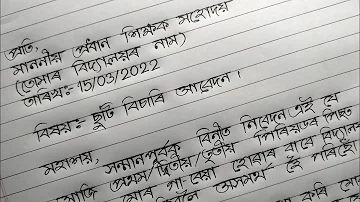 প্ৰতি,
মাননীয় প্ৰধান শিক্ষক মহোদয়
(তোমাৰ বিদ্যালয়ৰ নাম)
তাৰিখ:- 15/03/2022
বিষয়:- ছুটী বিচাৰি আবেদন।
মহাশয়,
সন্মানপূৰ্বক বিনীত নিবেদন এই যে
আজি প্ৰথম/দ্বিতীয়/তৃতীয় পিৰিয়ডৰ পিছত
মোৰ গা বেয়া হোৱাৰ বাবে বিদ্যালয়ত
অসমৰ্থ হৈ পৰিছোঁ
কৰি মোক